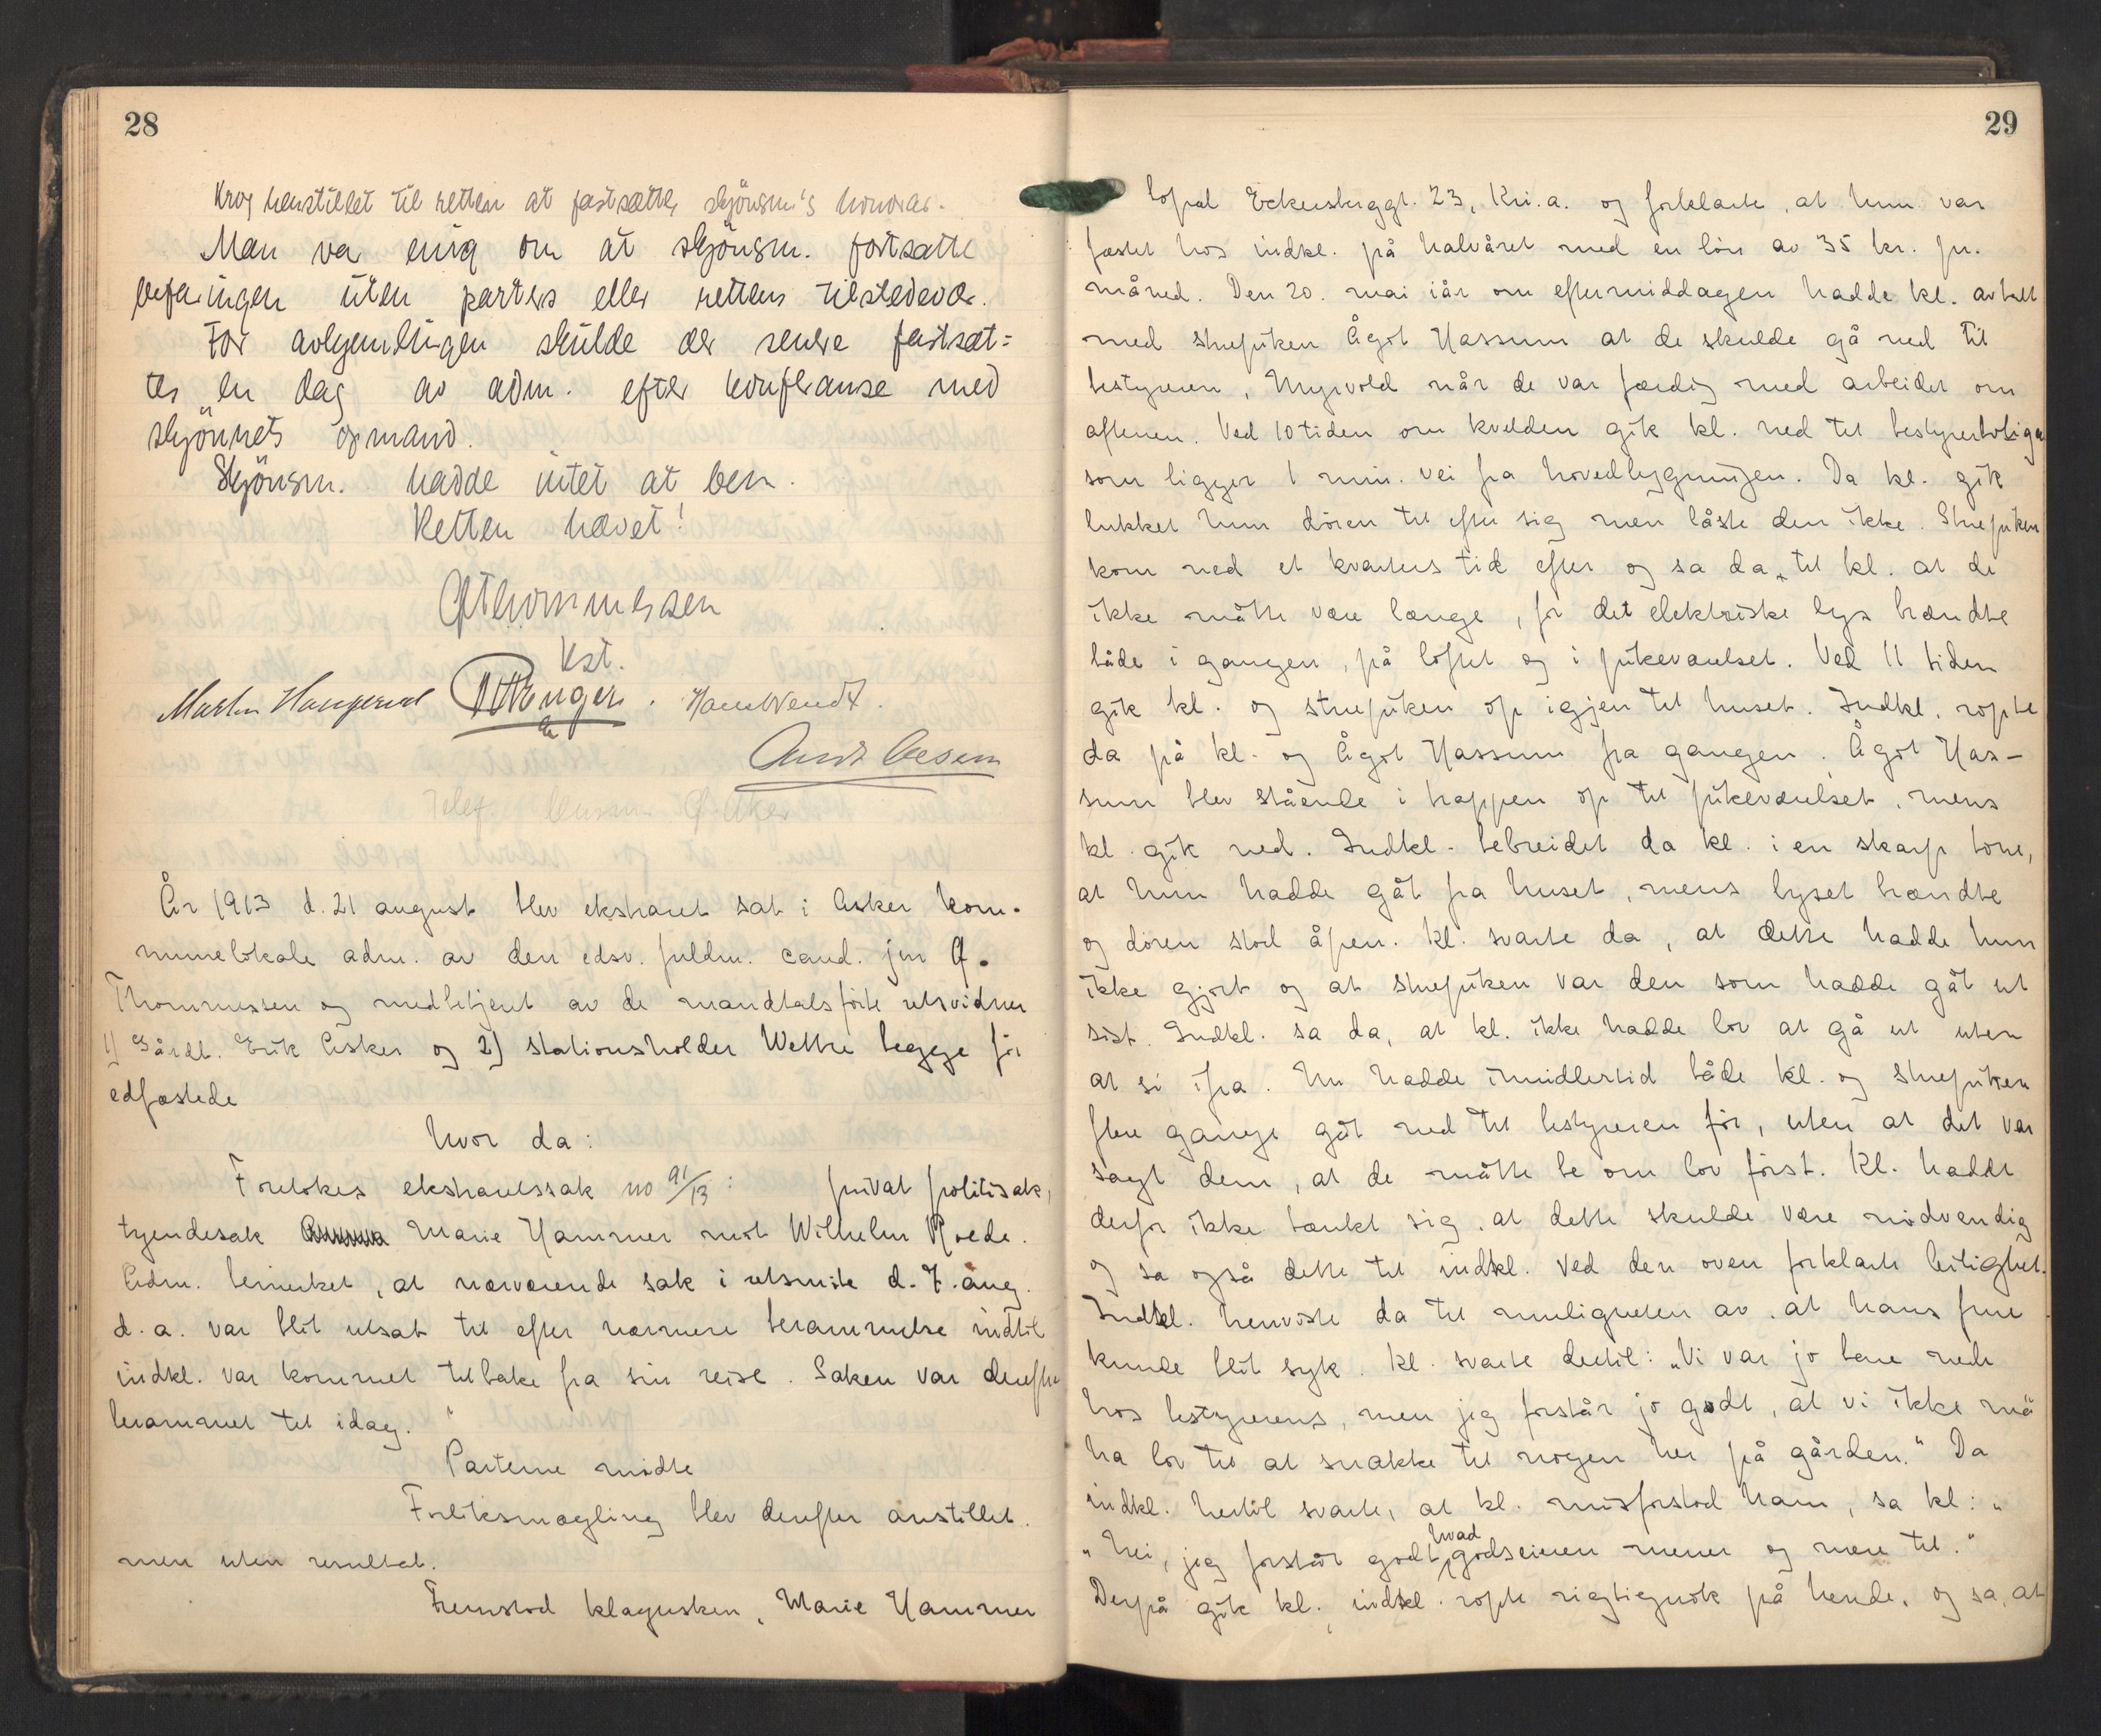 28
Krog henstillet til retten at fastsætte skjönsm's honorar.
Man var enig om at skjönsm. fortsatte
befaringen uten parters eller rettens tilstedevær.
For avhjemlingen skulde der senere fastsæt=
tes en dag av adm. efter konferanse med
skjönnets opmand.
Skjönsm. hadde intet at bem.
Retten hævet!
Thommessen
Kst.
Martin Haugerud Hans Wendt.
År 1913 d. 21 august blev ekstraret sat i Asker kom-
munelokale adm. av den edsv. fuldm. cand. jur G.
Thommessen og medbetjent av de mandtalsförte retsvidner
1) Gårdb. Erik Asker og 2) stationsholder Wettre begge för
edfæstede
hvor da:
Foretokes ekstraretssak no 91/13: privat politisak,
tyendesak Marie Hammer mot Wilhelm Roede.
Adm. bemerket, at nærværende sak i retsmöte d. 7. aug.
d. a. var blit utsat til efter nærmere berammelse indtil
indkl. var kommet tilbake fra sin reise. Saken var derefter
berammet til idag.
Parterne mödte
Forliksmægling blev derefter anstillet.
men uten resultat.
Fremstod klagersken, Marie Hammer
29
Eckersbergsgt. 23, Kri.a. og forklarte, at hun var
fæstet hos indkl. på halvåret med en lön av 35 kr. pr.
måned. Den 20. mai iår om eftermiddagen hadde kl. avtalt
med stuepiken Ågot Hassum at de skulde gå ned til
bestyreren, Myrvold når de var færdig med arbeidet om
aftenen. Ved 10 tiden om kvelden gik kl. ned til bestyrerboligen
som ligger 1 min. vei fra hovedbygningen. Da kl. gik
lukket hun dören til efter sig men låste den ikke. Stuepiken
kom ned et kvarters tid efter og sa da til kl. at de
ikke måtte være længe, for det elektriske lys brændte
både i gangen, på loftet og i pikeværelset. Ved 11 tiden
gik kl. og stuepiken op igjen til huset. Indkl. ropte
da på kl. og Ågot Hassum fra gangen. Ågot Has-
sum blev stående i trappen op til pikeværelset, mens
kl. gik ned. Indkl. bebreidet da kl. i en skarp tone,
at hun hadde gåt fra huset, mens lyset brændte
og dören stod åpen. Kl. svarte da, at dette hadde hun
ikke gjort og at stuepiken var den som hadde gåt ut
sist. Indkl. sa da, at kl. ikke hadde lov at gå ut uten
at si ifra. Nu hadde imidlertid både kl. og stuepiken
flere gange gåt ned til bestyreren för, uten at det var
sagt dem, at de måtte be om lov först. Kl. hadde
derfor ikke tænkt sig, at dette skulde være nödvendig
og sa også dette til indkl. ved den oven forklarte leilighet.
Indkl. henviste da til muligheten av, at hans frue
kunde blit syk. Kl. svarte dertil: "Vi var jo bare nede
hos bestyrerens, men jeg forstår jo godt, at vi ikke må
ha lov til at snakke til nogen her på gården." Da
indkl. hertil svarte, at kl. misforstod ham, sa kl:
"Nei, jeg forstår godt hvad godseieren mener og mere til."
Derpå gik kl. indkl. ropte rigtignok på hende, og sa, at